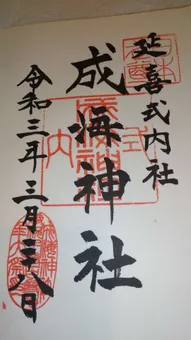 延喜式内社
成海神社
令和三年三月二十八日